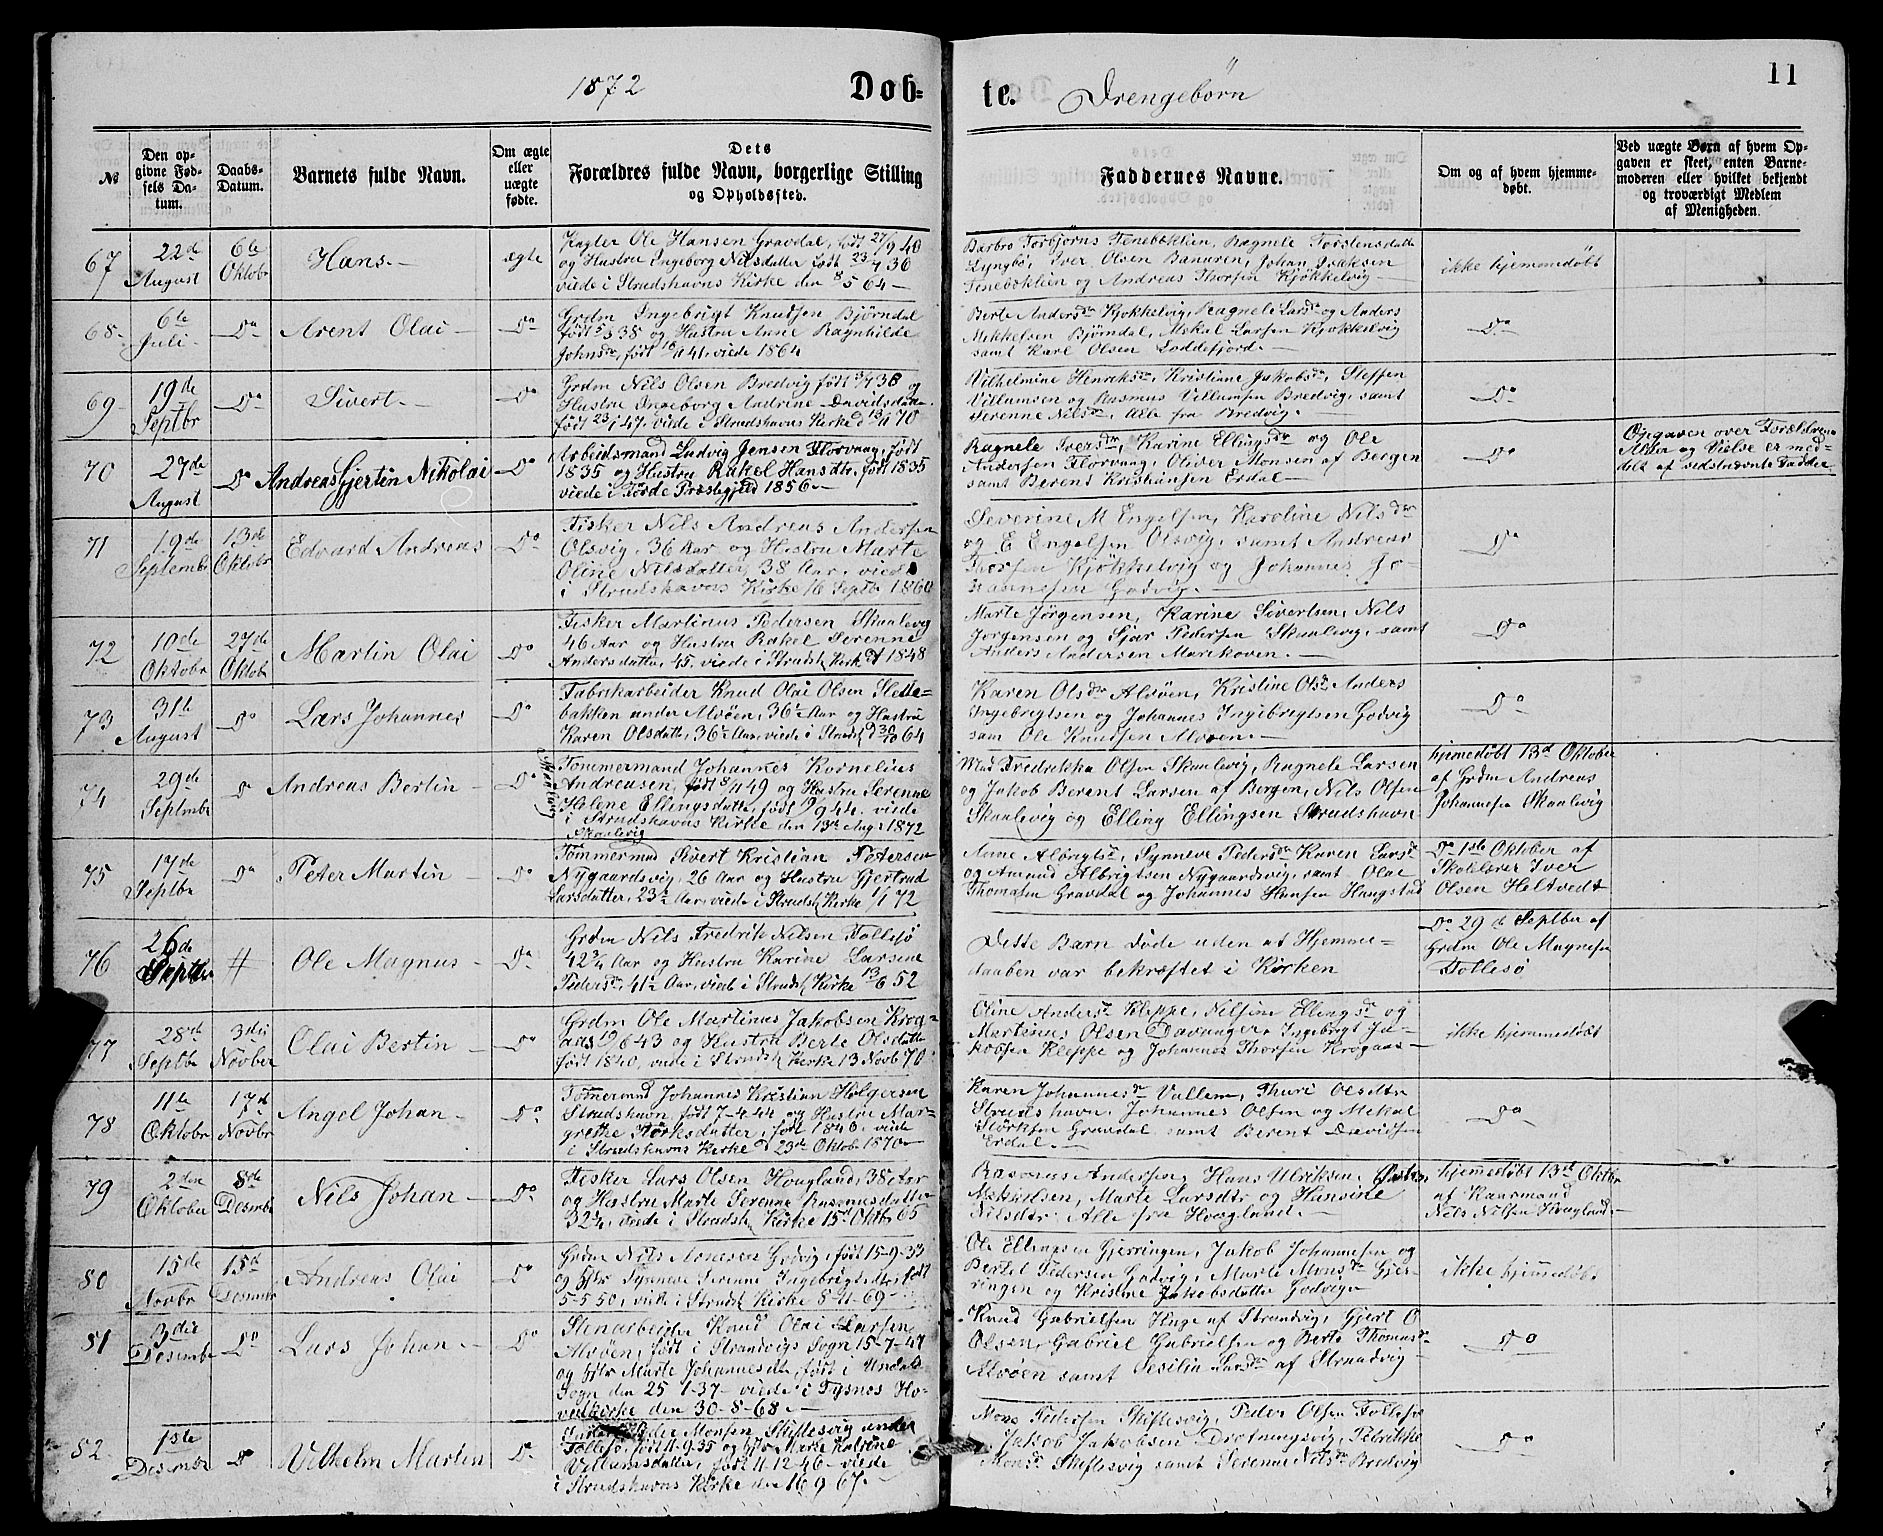 1872 Døb-
te. Drengebørn
11
№
Den op-
givne Fød-
sels Da-
tum.
Daabs-
Datum.
Barnets fulde Navn.
Om ægte
eller
uægte
fødte.
Dets
Forældres fulde Navn, borgerlige Stilling
og Opholdssted.
Faddernes Navne.
Om og af hvem hjemme-
døbt.
Ved uægte Børn af hvem Op-
gaven er skeet, enten Barne-
moderen eller hvilket bekjendt
og troværdigt Medlem
af Menigheden.
67
22de
August
6te
Oktobr
Hans
ægte
Ole Hansen Gravdal, født 27/9 40
og Hustru Ingeborg Nilsdatter født 23/4 36
viede i Strudshavns Kirke den 8/5 64
Barbro Torbjørns Teneboklien, Ragnele Torstensdatte
Lyngbø, Iver Olsen Banuren, Johan Isaksen
Teneboklien og Andreas Thorsen Kjøkkelvig
ikke hjemmedøbt
68
6te
Juli
Do
Arent Olai
Do
Grdm Ingebrigt Knutsen Bjørndal
født 38 og Hustru Anne Ragnhilde
Johnsdr, født 41, viede 1864
Berte Andersdr Kjøkkelvig, Ragnele Larsdr og Anders
Mikkelsen Bjørndal, Mekal Larsen Kjøkkelvig
samt Karl Olsen Loddefjord
Do
69
19de
Septbr
Do
Sivert
Do
Grdm Nils Olsen Bredvig født 3/4 38 og
Hustru Ingeborg Andrine Davidsdatr
født 23/1 47, viede i Strudshavns Kirke d 13/11 70
Vilhelmine Henriksdr, Kristiane Jakobsdr, Steffen
Villumsen og Rasmus Villumsen Bredvig, samt
Serenne Nilsdr, Alle fra Bredvig
Do
70
27de
August
Do
Andreas Gjertin Nikolai
Do
Arbeidsmand Ludvig Jensen Florvaag, født
1835 og Hustru Rakel Hansdtr, født 1835
viede i Førde Præstegjeld 1856
Ragnele Iversdr, Karine Ellingsdr og Ole
Andersen Florvaag, Oliver Monsen af Bergen
samt Berent Kristiansen Erdal
Do
Opgaven over Forældrenes
Alder og Vielse er med-
delt af sidstnævnte Fadder
71
19de
Septembr
13de
Oktobr
Edvard Andreas
Do
Fisker Nils Andreas Andersen
Olsvig, 36 Aar og Hustru Marte
Oline Nilsdatter, 38 Aar, viede
i Strudshavns Kirke 16 Septbr 1860
Severine M Engelsen, Karoline Nilsdr
og E Engelsen Olsvig, samt Andreas
Thorsen Kjøkkelvig og Johannes Jo-
hannesen Godvig
Do
72
10de
Oktobr
27de
Oktobr
Martin Olai
Do
Fisker Martinus Pedersen Skaalevig
46 Aar og Hustru Rakel Serenne
Andersdatter, 45, viede i Strudsh Kirke 1848
Marte Jørgensen, Karine Sivertsen, Nils
Jørgensen og Sjar Pedersen Skaalevig, samt
Anders Andersen Marikoven
Do
73
31te
August
Do
Lars Johannes
Do
Fabrikarbeider Knud Olai Olsen Slette-
bakken under Alvøen, 36½ Aar og Hustru
Karen Olsdatter, 36½ Aar, viede i Strudsh d 30/10 64
Karen Olsdr Alvøen, Kristine Olsdr, Anders
Ingebrigtsen og Johannes Ingebrigtsen Godvig
samt Ole Knudsen Alvøen
Do
74
29de
Septembr
Do
Andreas Bertin
Do
Skaalevig
Tømmermand Johannes Kornelius
Andreasen, født 8/4 49 og Hustru Serenne
Helene Ellingsdatter, født 19/9 44, viede
i Strudshavns Kirke den 13de Augs 1872
Mad Fredrikka Olsen Skaalevig, Ragnele Larsen
og Jakob Berent Larsen af Bergen, Nils Olsen
Skaalevig og Elling Ellingsen Strudshavn
hjemedøbt 13de Oktober
af Grdm Andreas
Johannesen Skaalevig
75
17de
Septbr
Do
Peter Martin
Do
Skaalevig
Tømmermnd Sivert Kristian Petersen
Nygaardsvig, 26 Aar og Hustru Gjertrud
Larsdatter, 23½ Aar, viede i Strudsh Kirke 1/1 72
Anne Albrigtsdr, Synneve Pedersdr, Karen Larsdr
og Amund Albrigtsen Nygaardsvig, samt Olai
Thomasen Gravdal og Johannes Hansen Haugstad
Do 1ste Oktober af
Skolelærer Iver
Olsen Heltvedt
76
26de
Septbr
#
Ole Magnus
Do
Grdm Nils Fredrik Nilsen Tollesø
42¾ Aar og Hustru Karine Larsine
Pedersdr, 41½ Aar, viede i Strudsh Kirke 13/6 52
Dette Barn døde uden at Hjemme-
daaben var bekræftet i Kirken
Do 29de Septber af
Grdm Ole Magnesen
Tollesø
77
28de
Septbr
3die
Novber
Olai Bertin
Do
Grdm Ole Martinus Jakobsen Krog-
aas 19/6 43 og Hustru Berte Olsdatter
født 1840, viede i Strudsh Kirke 13 Novb 70
Oline Andersdr Kleppe, Nilsine Ellingsdr og
Martinus Olsen Davanger, Ingebrigt Ja-
kobsen Kleppe og Johannes Thorsen Krogaas
ikke hjemmedøbt
78
11te
Oktobr
17de
Novbr
Angel Johan
Do
Tømermnd Johannes Kristian Holgersen
Strudshavn, født 7-4-44 og Hustru Mar-
grethe Størksdatter, født 1840, viede
i Strudshavns Kirke d 23de Oktobr 1870
Karen Johannesdr Vallem, Thuri Olsdtr
Strudshavn, Johannes Olsen og Mekal
Størksen Gravdal samt Berent Davidsen
Erdal
Do
79
2den
Oktober
8de
Desembr
Nils Johan
Do
Fisker Lars Olsen Hougland, 35 Aar
og Hustru Marte Serenne Rasmusdatter
32¼, viede i Strudsh Kirke 15de Oktbr 65
Rasmus Andersen, Hans Ulriksen,
Mekalsen, Marte Larsdtr og Hansine
Nilsdtr, Alle fra Hougland
hjemedøbt 13de Oktbr
af Kaarmand
Nils Nilsen Hougland
80
15de
Novbr
15de
Desembr
Andreas Olai
Do
Grdm Nils Monsen Godvig, født 15-9-33
og Hstr Synneve Serenne Ingebrigtsdtr, født
5-5 50, viede i Strudsh Kirke 8-11-69
Ole Ellingsen Gjerringen, Jakob Johannesen og
Bertel Pedersen Godvig, Marte Monsdr Gjer-
ringen og Kristine Jakobsdatter Godvig
ikke hjemmedøbt
81
3die
Desembr
Do
Lars Johan
Do
Stenarbeider Knud Olai Larsen
Alvøen, født i Strandvigs Sogn 15-7-47
og Hstr Marte Johannesdtr, født i Undals
Sogn den 25 1-37 viede i Tysnes Ho-
vedkirke den 30-8-68
Knud Gabrielsen Huge af Strandvig, Gjert O
Olsen, Gabriel Gabrielsen og Berte Thomasdr
Alvøen samt Sesilia Larsdr af Strandvig
Do
82
1ste
Desembr
Do
Vilhelm Martin
Do
Monsen, Skiftesvig under
Tollesø, født 11-9-35 og Hstr Marte Katrine
Villumsdatter, født 11-12-46 viede
i Strudshavns Kirke den 16 9 67
Mons Pedersen Skiftesvig, Peder Olsen Tollesø
Jakob Jakobsen Drotningsvig, Petrikke
Monsdr Skiftesvig samt Serenne Nilsdr Bredvig
Do